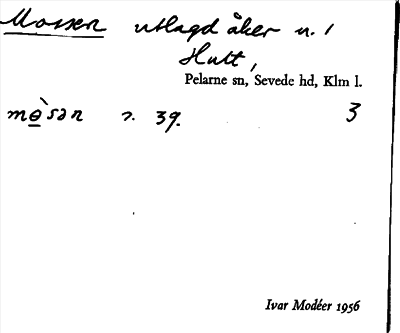 Mossen utlagd åker n. 1
Hult,
Pelarne sn, Sevede hd, Klm l.
mò̲sən n. 39. 3
Ivar Modéer 1956